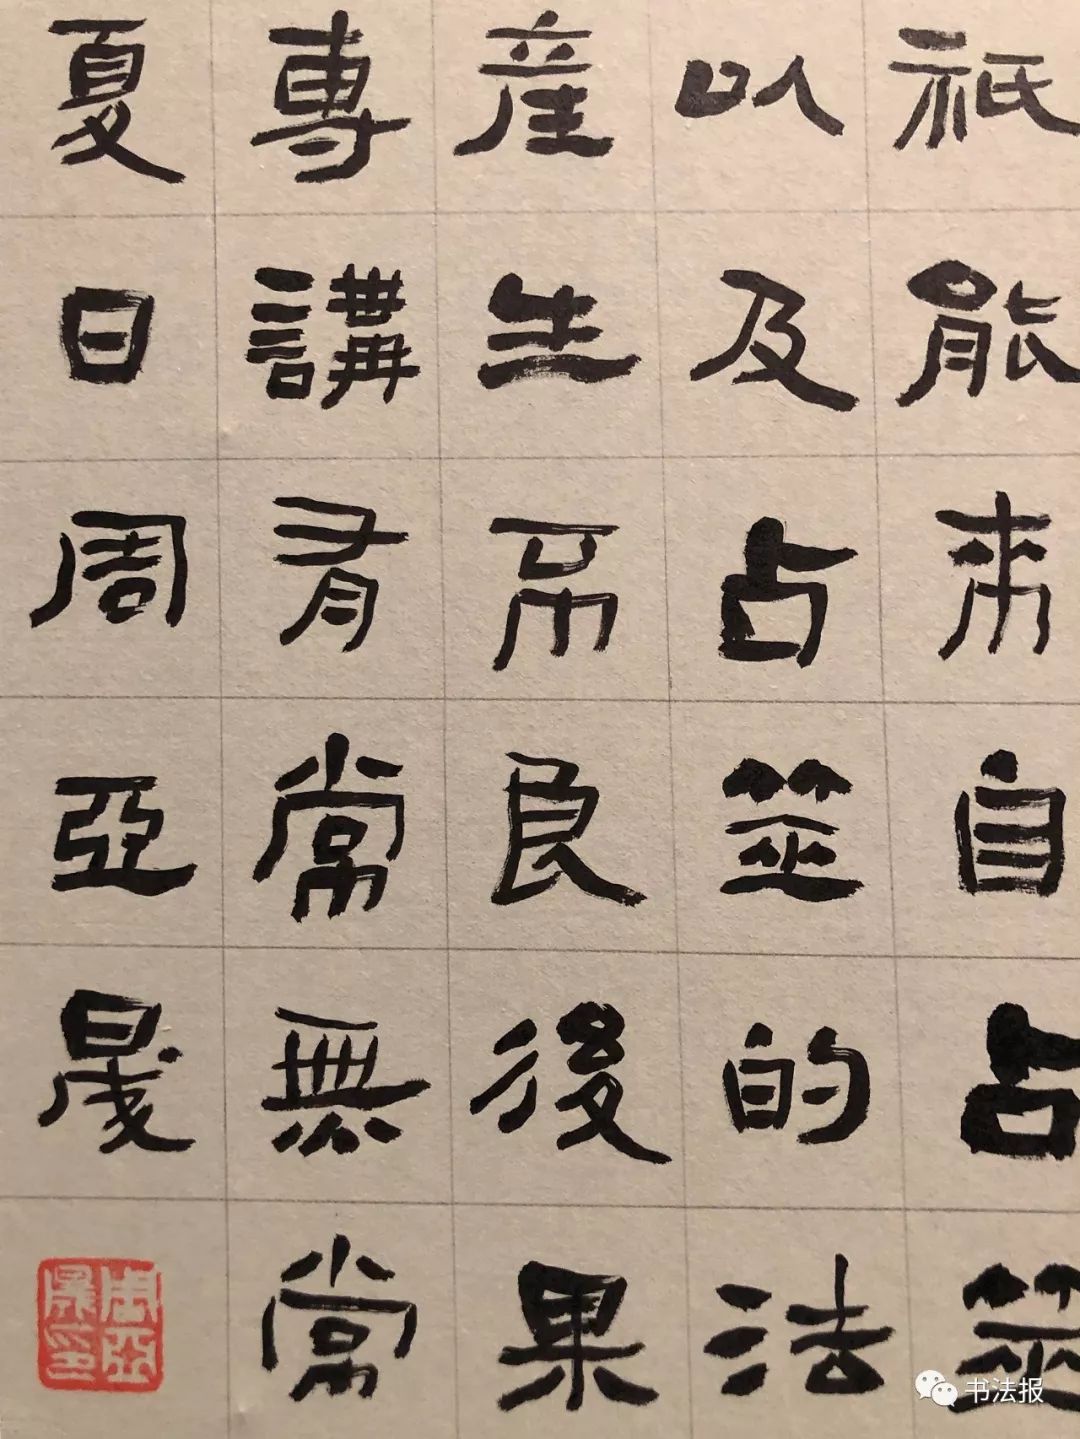 祇能来自占筮
以及占筮的法
産生不良後果
專講有常無常
夏日周亞晟
周亞晟印
书法报